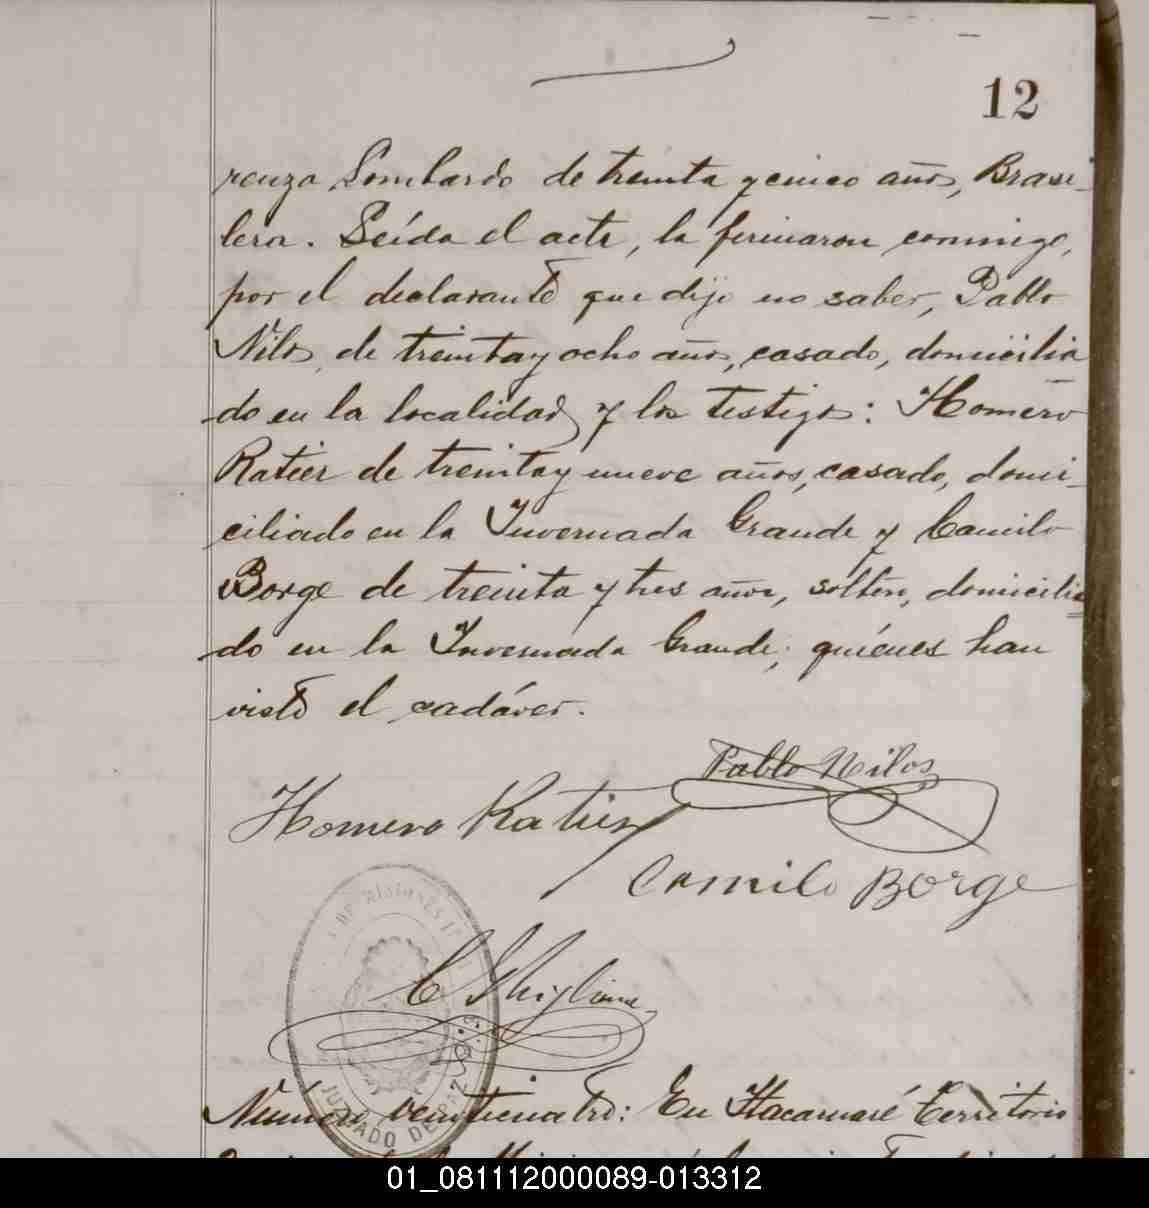 12
renza Lombardo de treinta y cinco años, Brasi-
lera. Leída el acta, la firmaron conmigo,
por el declarante que dijo no saber, Pablo
Nilos, de treinta y ocho años, casado, domicilia
do en la localidad y los testigos: Homero
Ratier de treinta y nueve años, casado, domi-
ciliado en la Invernada Grande y Camilo
Borge de treinta y tres años, soltero, domicilia
do en la Invernada Grande; quiénes han
visto el cadáver.
Pablo Nilos
Homero Ratier
Camilo Borge
DE MISIONES
JUZGADO DE PAZ
Número veinticuatro: En Itacaruaré Territorio
01_081112000089-013312